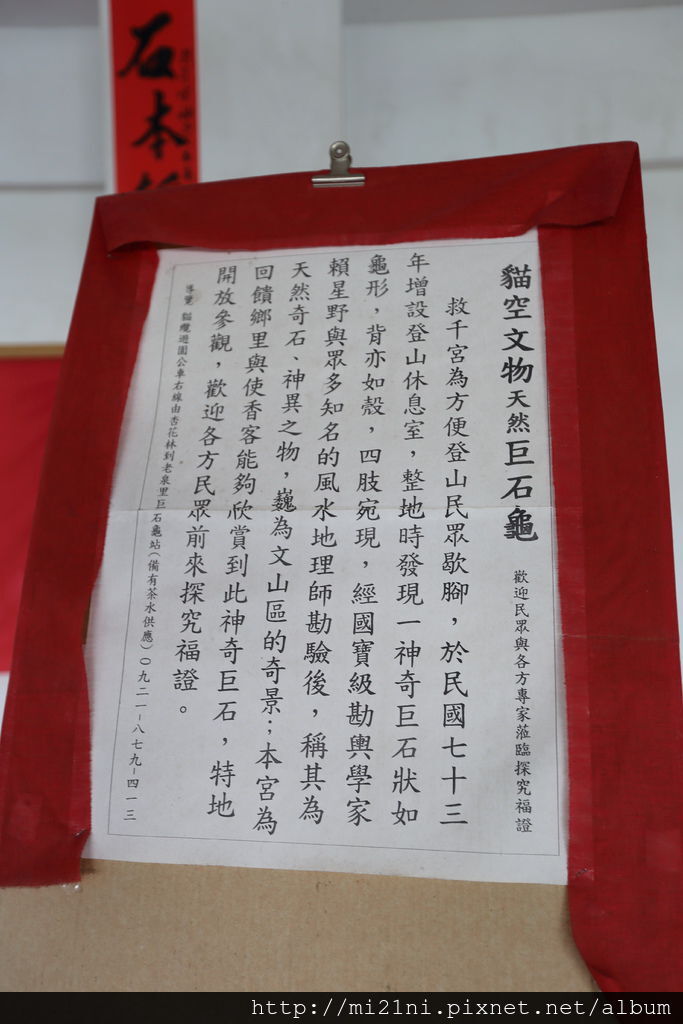 石本
貓空文物天然巨石龜 歡迎民眾與各方專家蒞臨探究福證
救千宮為方便登山民眾歇腳，於民國七十三
年增設登山休息室，整地時發現一神奇巨石狀如
龜形，背亦如殼，四肢宛現，經國寶級勘輿學家
賴星野與眾多知名的風水地理師勘驗後，稱其為
天然奇石、神異之物，巍為文山區的奇景；本宮為
回饋鄉里與使香客能夠欣賞到此神奇巨石，特地
開放參觀，歡迎各方民眾前來探究福證。
導覽 貓纜遊園公車右線由杏花林到老泉里巨石龜站（備有茶水供應）０九二一－八七九－四一三
http://mi21ni.pixnet.net/album